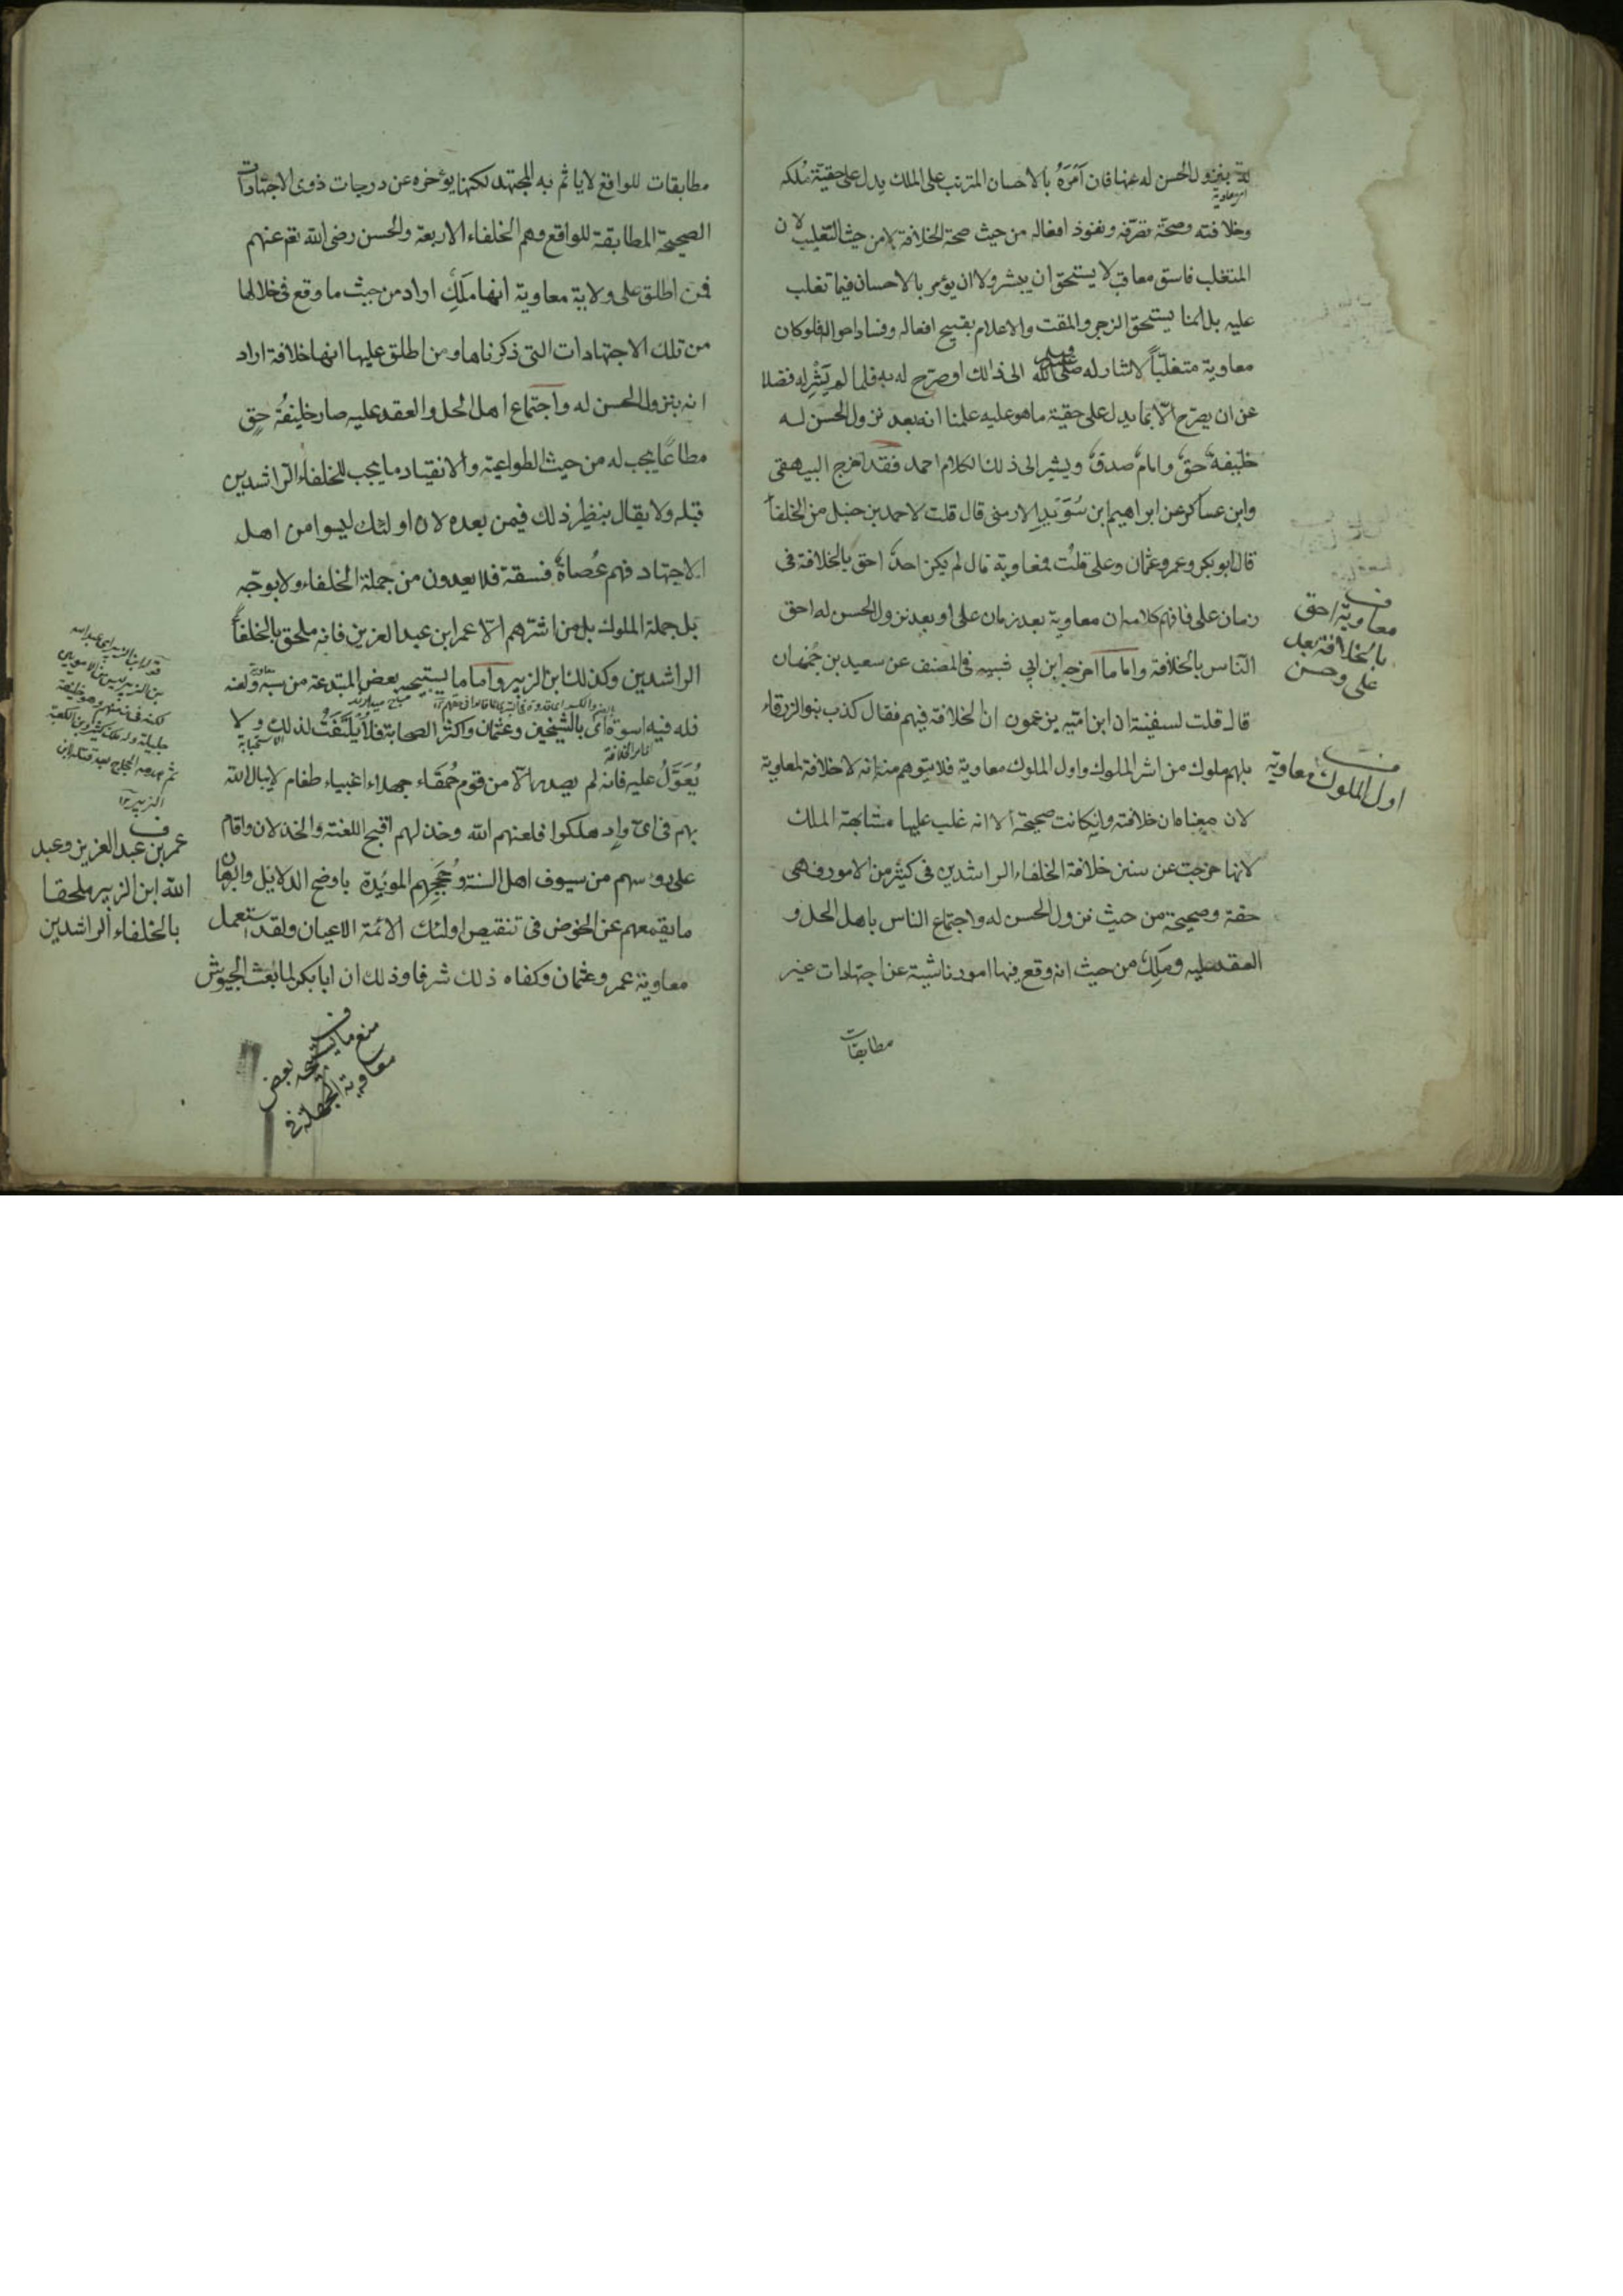 له بنزول الحسن له عنها فان اَمَرَهُ بالاحسان المترتب على الملك يدل على حقيّة مُلكه
امر معاوية
وخلافته وصحة تصرّفه ونفوذ افعاله من حيث صحة الخلافة لا من حيث التغلب لان
المتغلب فاسق معاقب لا يستحق ان يبشر ولا ان يؤمر بالاحسان فيما تغلب
عليه بل انما يستحق الزجر والمقت والاعلام بقبيح افعاله وفساد احواله فلوكان
معاوية متغلّباً لاشار له صلى الله عليه وسلم الى ذلك او صرّح له به فلما لم يَشْرِ له فضلا
عن ان يصرّح الّا بما يدل على حقيّة ما هو عليه علمنا انه بعد نزول الحسن له
خليفةُ حقٍ وامام صدقٍ ويشير الى ذلك كلام احمد فقد اخرج البيهقى
وابن عساكر عن ابراهيم ابن سُوَيْدِ الارمنى قال قلت لاحمد بن حنبل من الخلفأ
قال ابو بكر وعمر وعثمان وعلى قلتُ فمعاوية قال لم يكن احدٌ احق بالخلافة فى
زمان على فافهم كلامه ان معاوية بعد زمان على او بعد نزول الحسن له احق
الناس بالخلافة واما ما اخرجه ابن ابي شيبه فى المصنف عن سعيد بن جُمْهان
قال قلت لسفينة ان ابن اميه يزعمون ان الخلافة فيهم فقال كذب بنو الزرقاء
بل هم ملوك من اشر الملوك واول الملوك معاوية فلا يتوهم منه انه لا خلافة لمعاوية
لان معناه ان خلافته وانكانت صحيحة الا انه غلب عليها مشابهة الملك
لانها خرجت عن سنن خلافة الخلفاء الراشدين فى كثير من الامور فهى
حقة وصحيحة من حيث نزول الحسن له واجتماع الناس باهل الحل و
العقد عليه ومَلِكٌ من حيث انه وقع فيها امور ناشية عن اجتهادات غير
مطابقات
ف
معاوية احق
بالخلافة بعد
على وحسن
ف
اول الملوك معاوية
مطابقات للواقع لا ياثم به المجتهد لكنها يؤخره عن درجات ذوى الاجتهادات
الصحيحة المطابقة للواقع وهم الخلفاء الاربعة والحسن رضى الله تعم عنهم
فمن اطلق على ولاية معاوية انها مَلَكٌ اراد من حيث ما وقع فى خلالها
من تلك الاجتهادات التى ذكرناها ومن اطلق عليها انها خلافة اراد
انه بنزول الحسن له واجتماع اهل الحل والعقد عليه صار خليفةُ حقٍ
مطاعًا يجب له من حيث الطواعية والانقياد ما يجب للخلفاء الراشدين
قبله ولا يقال بنظير ذلك فيمن بعده لان اولئك ليسوا من اهل
الاجتهاد فهم عُصاةٌ فسقة فلا يعدون من جملة الخلفاء ولا بوجه
بل جملة الملوك بل من اشرهم الّا عمر ابن عبد العزيز فانه ملحق بالخلفأ
الراشدين وكذلك ابن الزبير واما ما يستبيحه بعض المبتدعة من سبه ولعنه
معاوية
فله فيه اسوة اى بالشيخين وعثمان واكثر الصحابة فلا يُلْتَفَتُ لذلك ولا
يُعَوَّلُ عليه فانه لم يصدر الّا من قوم حُمَقَاء جهلاء اغبياء طغام لا يبال الله
بهم فى اىّ واد هلكوا فلعنهم الله وخذلهم اقبح اللعنة والخذلان واقام
على رؤسهم من سيوف اهل السنة وحُجَجِهِم المويّدة باوضح الدلايل والبرهان
ما يقمعهم عن الخوض فى تنقيص اولئك الائمة الاعيان ولقد استعمل
معاوية عمر وعثمان وكفاه ذلك شرفا وذلك ان ابا بكر لما بعث الجيوش
ف
عمر بن عبد العزيز وعبد
الله ابن الزبير ملحقا
بالخلفاء الراشدين
ف
منع ما يستبيحه بعض
الجهلة فى
معاوية